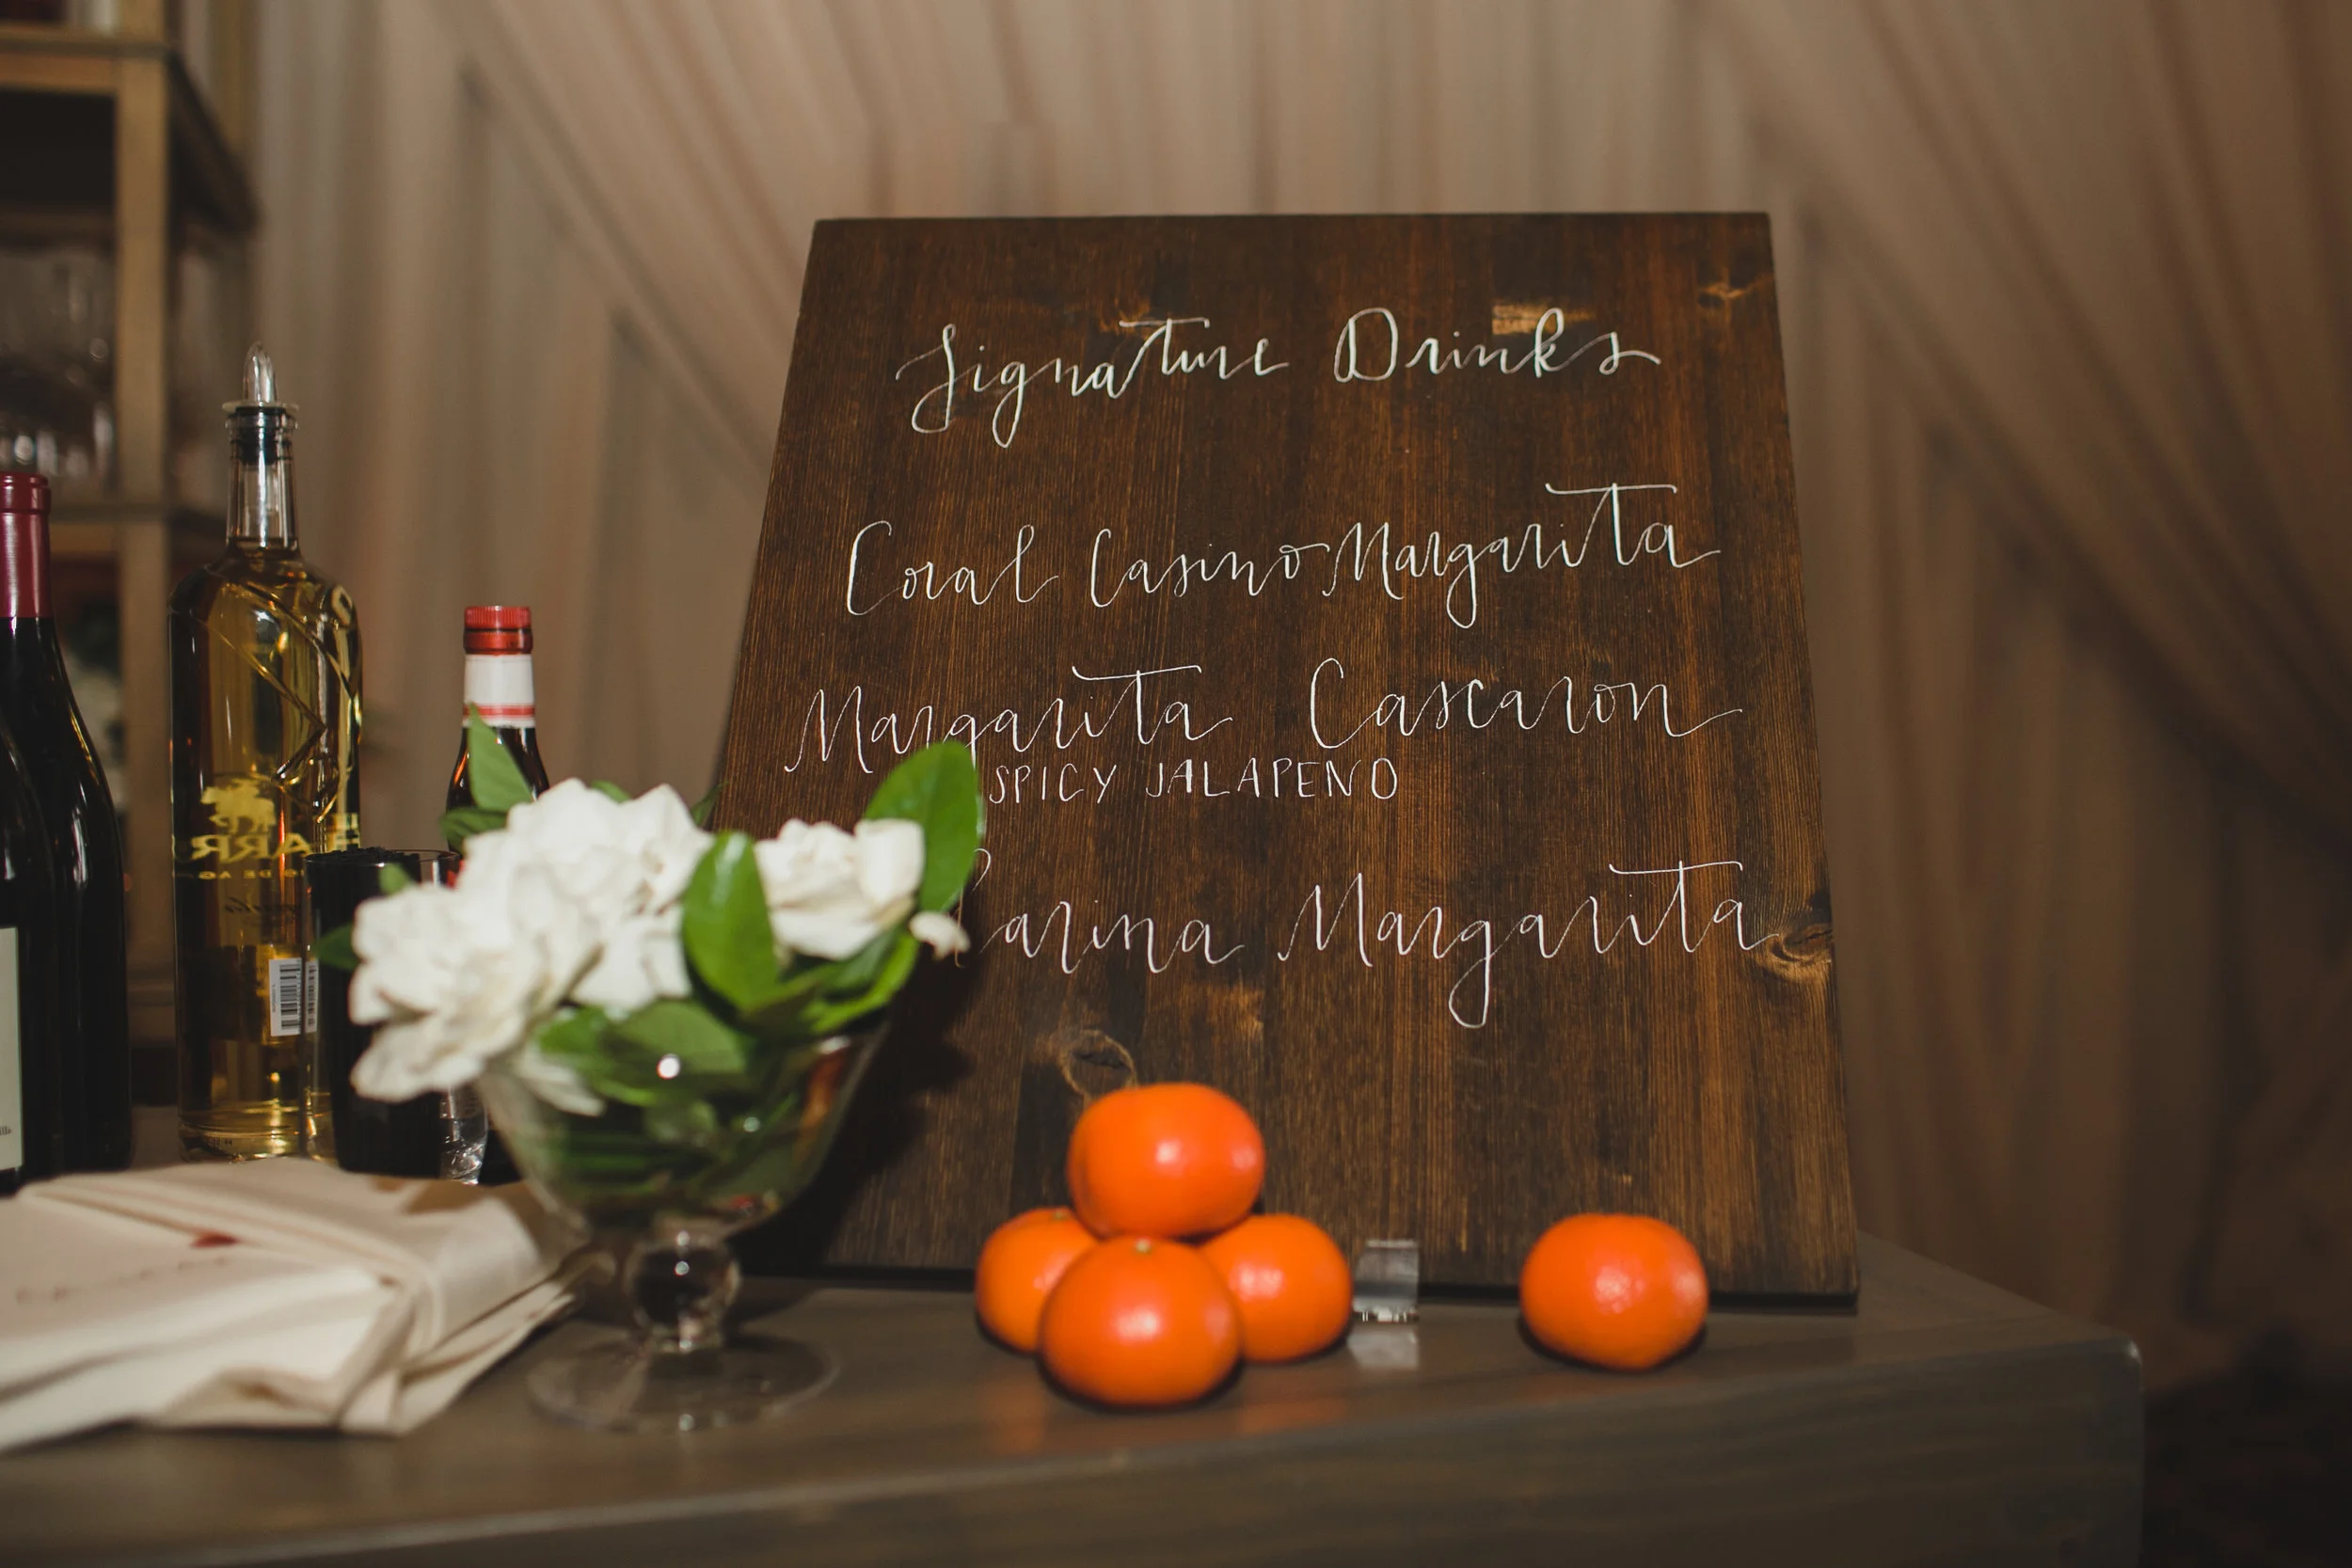 Signature Drinks
Coral Casino Margarita
Margarita Cascaron
SPICY JALAPENO
Margarita